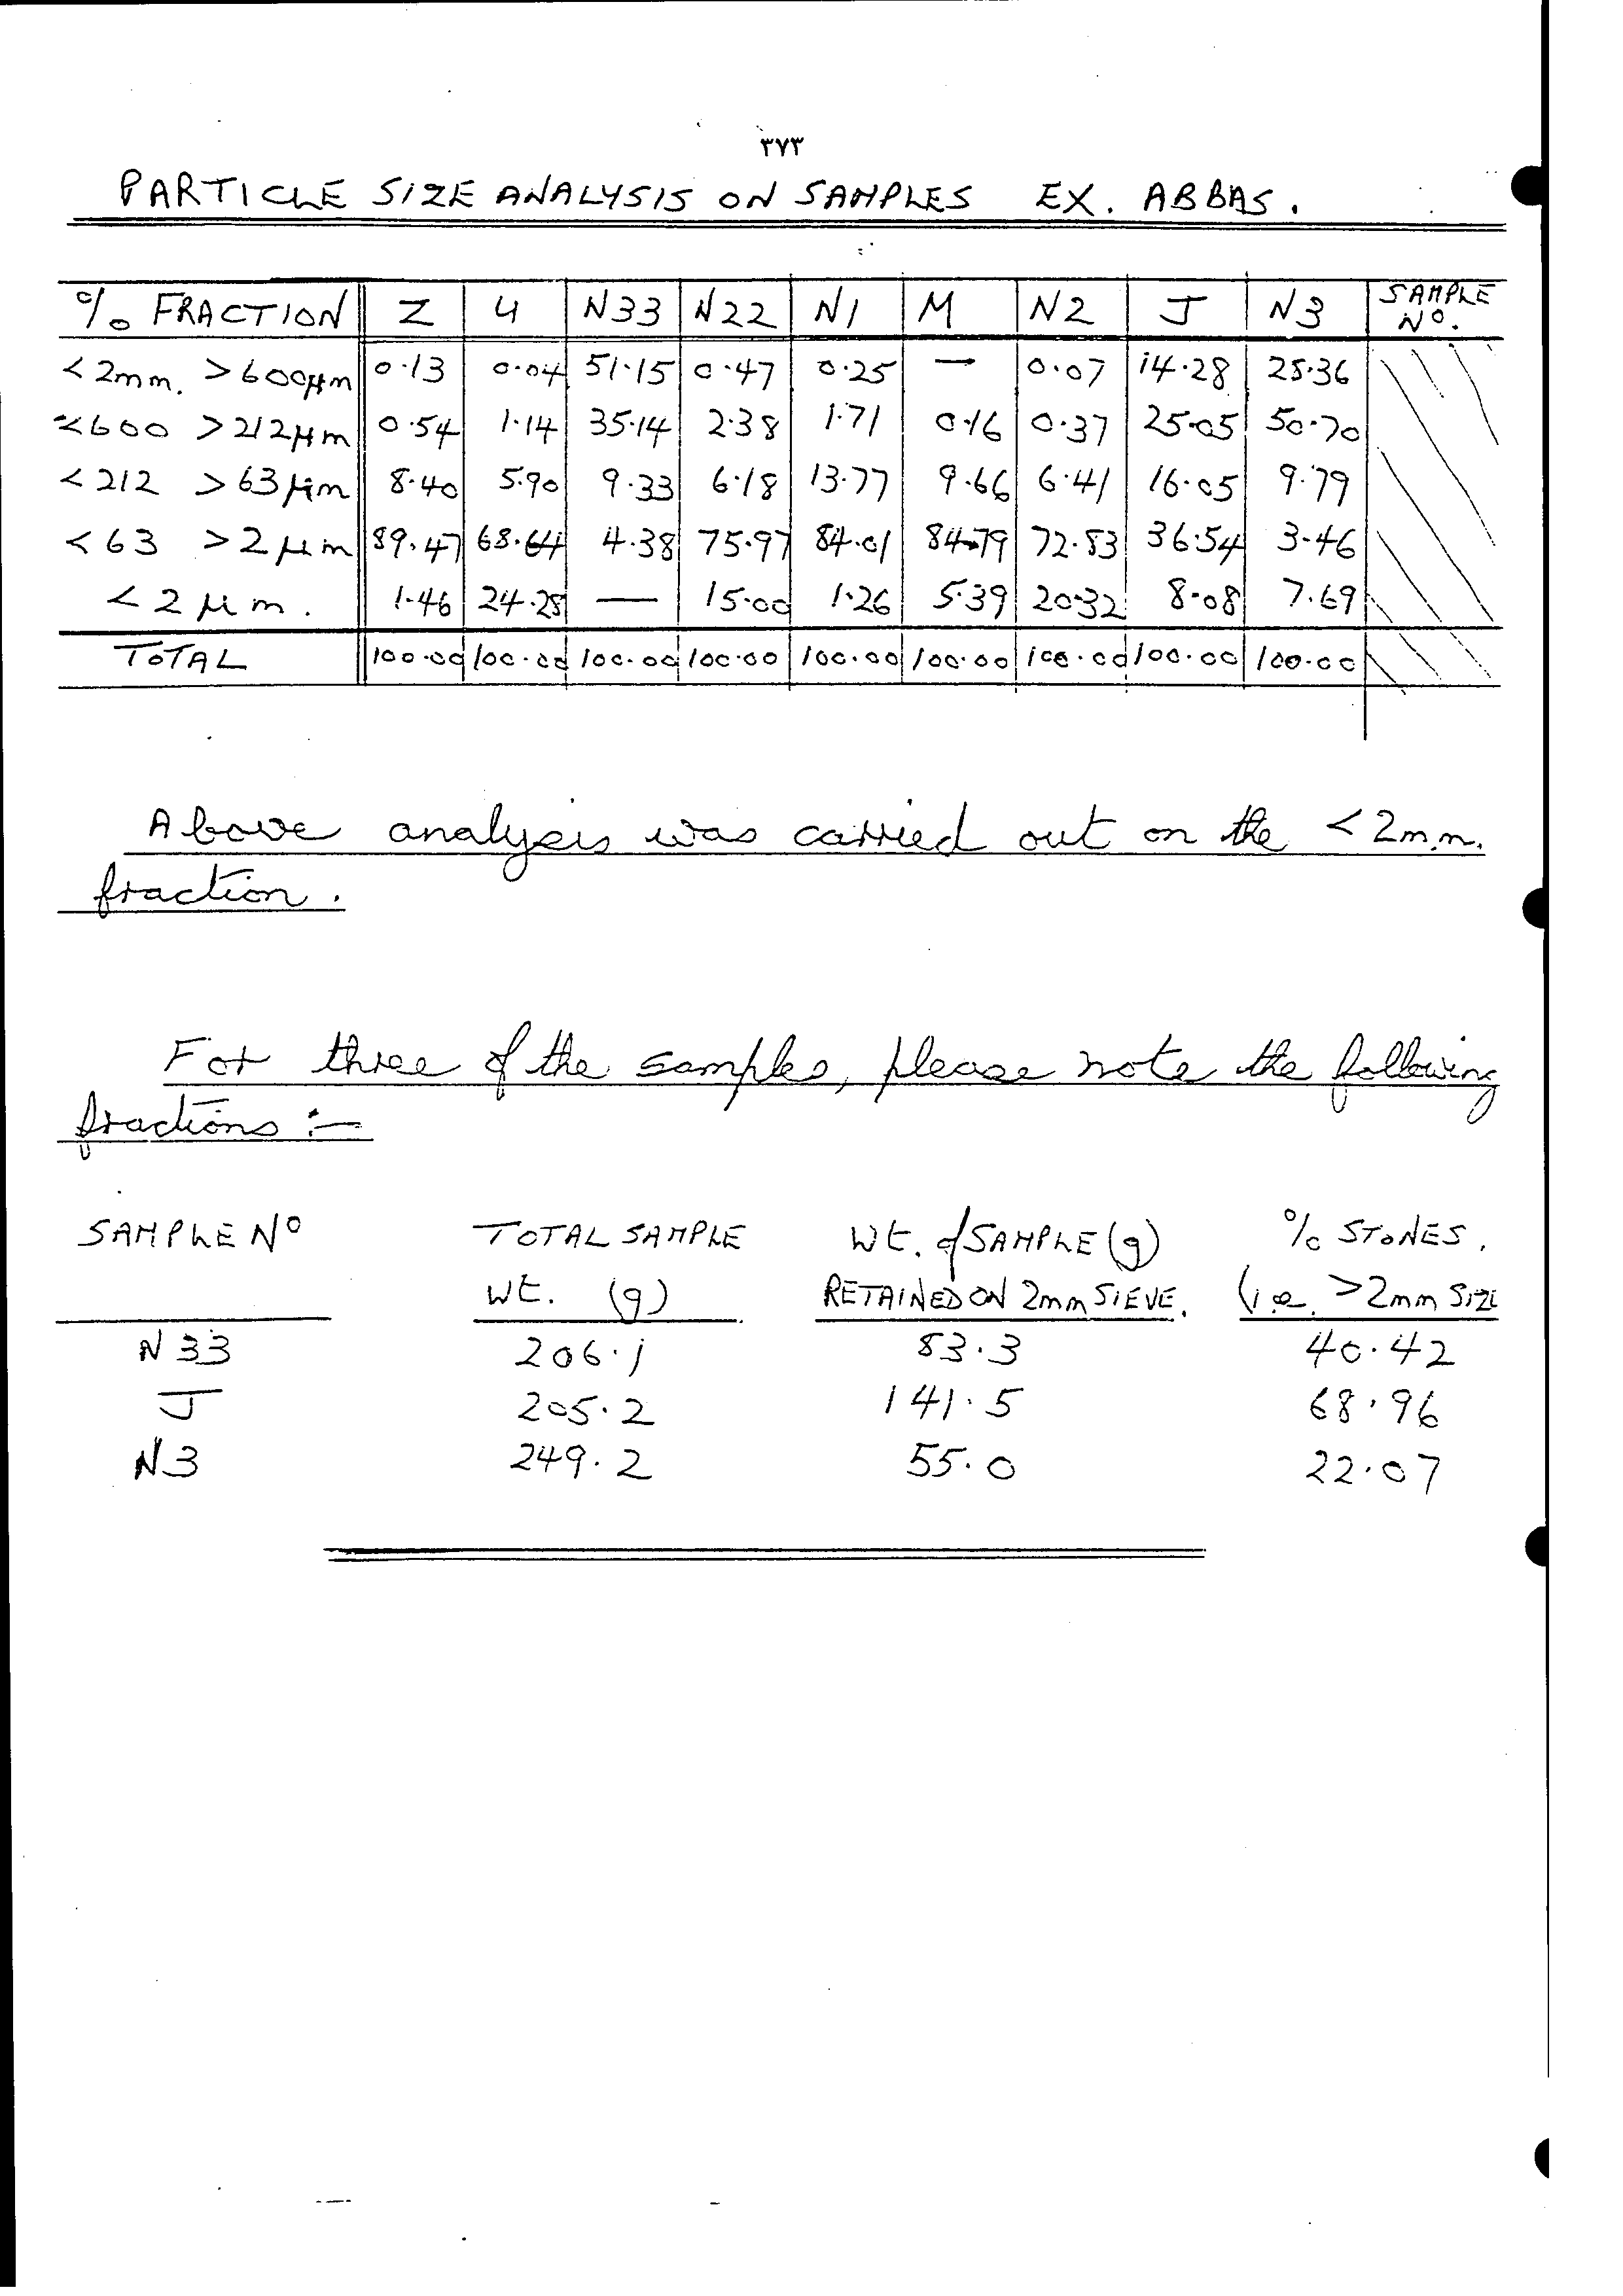 ٣٧٣
PARTICLE SIZE ANALYSIS ON SAMPLES EX. ABBAS.
% FRACTION Z 4 N33 N22 N1 M N2 J N3 SAMPLE Nº.
<2mm. >600µm 0.13 0.04 51.15 0.47 0.25 — 0.07 14.28 28.36
<600 >212µm 0.54 1.14 35.14 2.38 1.71 0.16 0.37 25.05 50.70
<212 >63µm 8.40 5.90 9.33 6.18 13.77 9.66 6.41 16.05 9.79
<63 >2µm 89.47 68.64 4.38 75.97 84.01 84.79 72.83 36.54 3.46
<2µm. 1.46 24.28 — 15.00 1.26 5.39 20.32 8.08 7.69
TOTAL 100.00 100.00 100.00 100.00 100.00 100.00 100.00 100.00 100.00
Above analysis was carried out on the <2mm.
fraction.
For three of the samples, please note the following
fractions :—
SAMPLE Nº TOTAL SAMPLE Wt. of SAMPLE (g) % STONES.
Wt. (g) RETAINED ON 2mm SIEVE. (i.e. >2mm SIZE
N33 206.1 83.3 40.42
J 205.2 141.5 68.96
N3 249.2 55.0 22.07